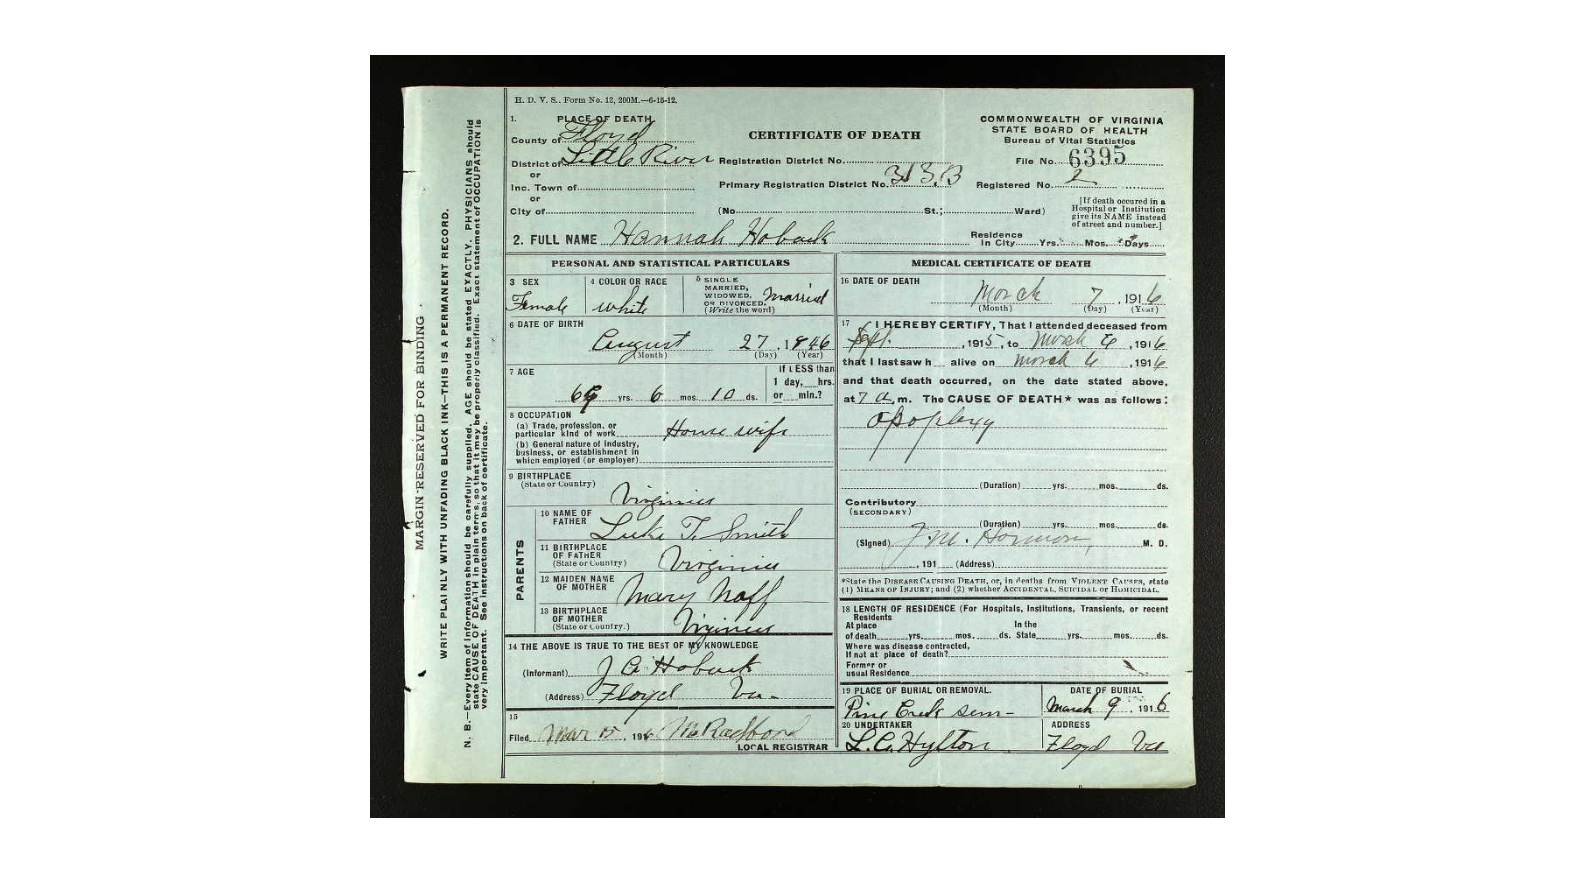 H. D. V. S., Form No. 12, 200M.—6-15-12.
1. PLACE OF DEATH
County of Floyd
District of Little River
or
Inc. Town of
or
City of
CERTIFICATE OF DEATH
Registration District No.
Primary Registration District No. 313B
(No. St.; Ward)
COMMONWEALTH OF VIRGINIA
STATE BOARD OF HEALTH
Bureau of Vital Statistics
File No. 6395
Registered No. 2
[If death occured in a
Hospital or Institution
give its NAME instead
of street and number.]
2. FULL NAME Hannah Hoback
Residence
In City Yrs. Mos. Days
PERSONAL AND STATISTICAL PARTICULARS
3 SEX
Female
4 COLOR OR RACE
white
5 SINGLE
MARRIED,
WIDOWED,
OR DIVORCED.
(Write the word)
Married
6 DATE OF BIRTH
August 27, 1846
(Month) (Day) (Year)
7 AGE
69 yrs. 6 mos. 10 ds.
If LESS than
1 day, hrs.
or min.?
8 OCCUPATION
(a) Trade, profession, or
particular kind of work House wife
(b) General nature of industry,
business, or establishment in
which employed (or employer)
9 BIRTHPLACE
(State or Country)
Virginia
PARENTS
10 NAME OF
FATHER
Luke T. Smith
11 BIRTHPLACE
OF FATHER
(State or Country)
Virginia
12 MAIDEN NAME
OF MOTHER
Mary Naff
13 BIRTHPLACE
OF MOTHER
(State or Country.)
Virginia
14 THE ABOVE IS TRUE TO THE BEST OF MY KNOWLEDGE
(Informant) Hoback
(Address) Floyd Va-
15
Filed Mar 15, 1916
LOCAL REGISTRAR
MEDICAL CERTIFICATE OF DEATH
16 DATE OF DEATH
March 7, 1916
(Month) (Day) (Year)
17 I HEREBY CERTIFY, That I attended deceased from
Sept. , 1915, to March 6, 1916
that I last saw h alive on March 6, 1916
and that death occurred, on the date stated above,
at 7 a. m. The CAUSE OF DEATH* was as follows:
Apoplexy
(Duration) yrs. mos. ds.
Contributory
(SECONDARY)
(Duration) yrs. mos. ds.
(Signed) J. M. Harmon, M. D.
, 191 (Address)
*State the DISEASE CAUSING DEATH, or, in deaths from VIOLENT CAUSES, state
(1) MEANS OF INJURY; and (2) whether ACCIDENTAL, SUICIDAL or HOMICIDAL.
18 LENGTH OF RESIDENCE (For Hospitals, Institutions, Transients, or recent
Residents
At place In the
of death yrs. mos. ds. State yrs. mos. ds.
Where was disease contracted,
If not at place of death?
Former or
usual Residence
19 PLACE OF BURIAL OR REMOVAL.
Pine Creek sem-
DATE OF BURIAL
March 9, 1916
20 UNDERTAKER
L. G. Hylton
ADDRESS
Floyd Va
MARGIN RESERVED FOR BINDING
WRITE PLAINLY WITH UNFADING BLACK INK—THIS IS A PERMANENT RECORD.
N. B.—Every item of information should be carefully supplied. AGE should be stated EXACTLY. PHYSICIANS should
state CAUSE OF DEATH in plain terms, so that it may be properly classified. Exact statement of OCCUPATION is
very important. See instructions on back of certificate.